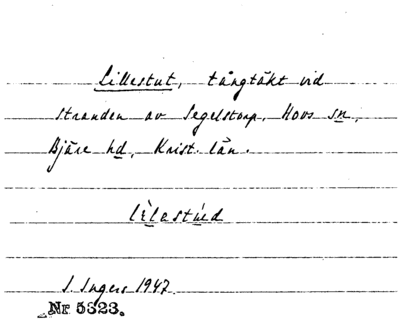 Lillestut, tångtäkt vid
stranden av Segelstorp, Hovs sn,
Bjäre hd, Krist. län.
lìlastúed
I. Ingers 1947.
Nr 5323.